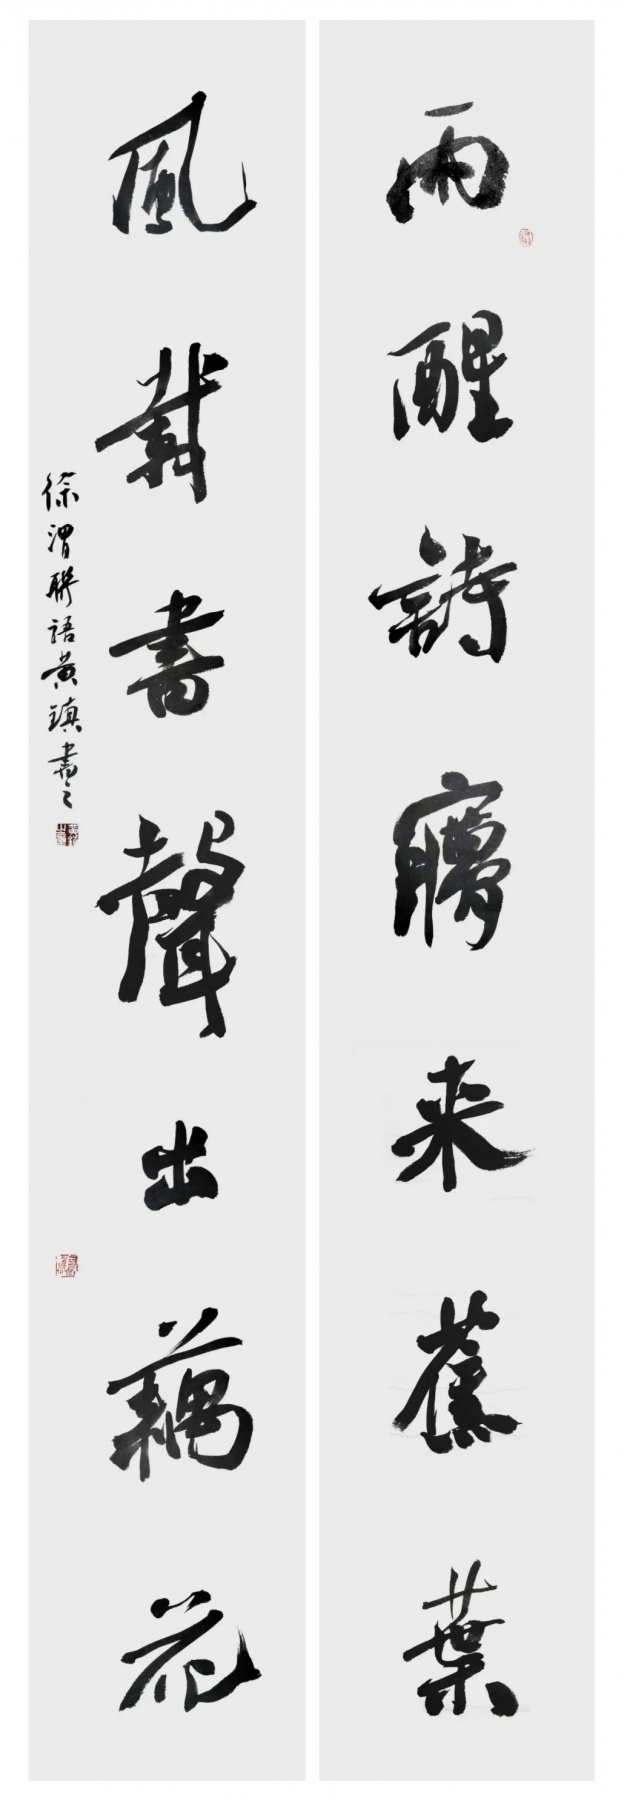 雨醒詩夢来蕉葉
風載書聲出藕花
徐渭聯語黄鎮書之